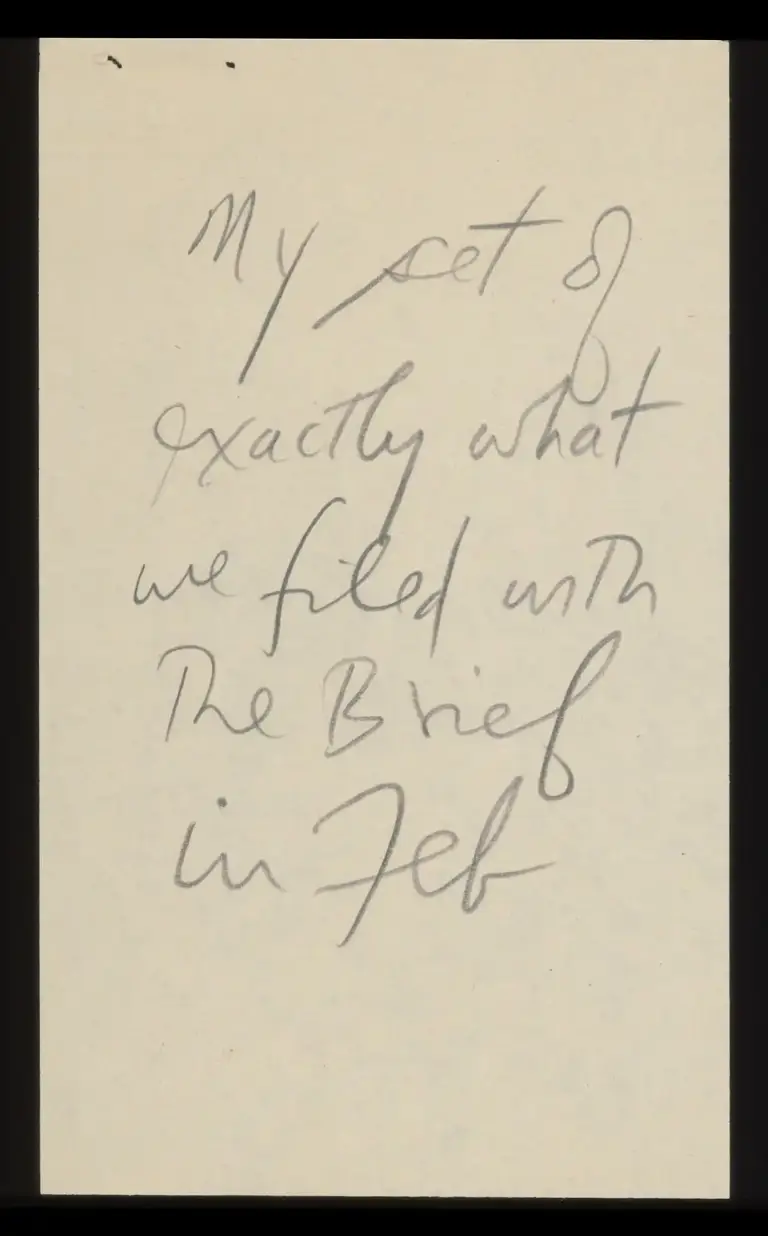 My set of
exactly what
we filed with
The Brief
in Feb